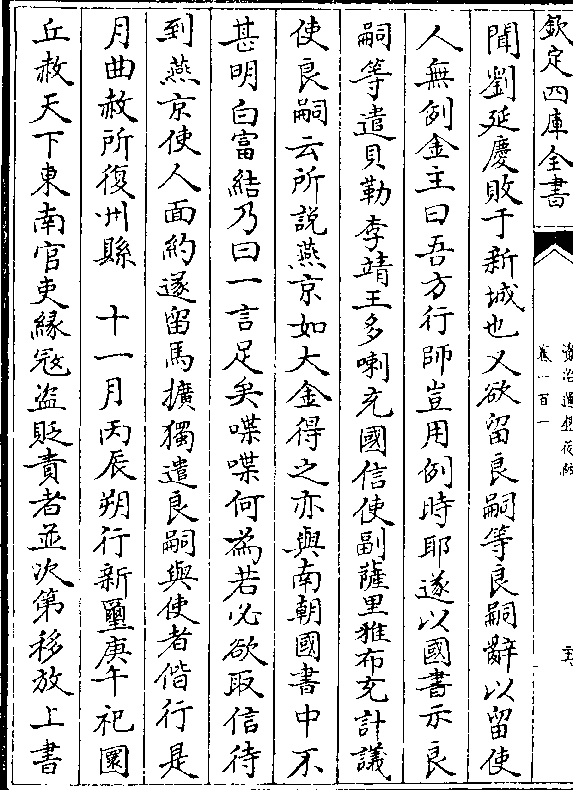 欽定四庫全書
卷一百一
聞劉延慶敗于新城也又欲留良嗣等良嗣辭以留使
人無例金主曰吾方行師豈用例時耶遂以國書示良
嗣等遣貝勒李靖王多喇充國信使副薩里雅布充計議
使良嗣云所説燕京如大金得之亦與南朝國書中不
甚明白富結乃曰一言足矣喋喋何為若必欲取信待
到燕京使人面約遂留馬擴獨遣良嗣與使者偕行是
月曲赦所復州縣　十一月丙辰朔行新璽庚午祀圜
丘赦天下東南官吏緣寇盗貶責者並次第移放上書